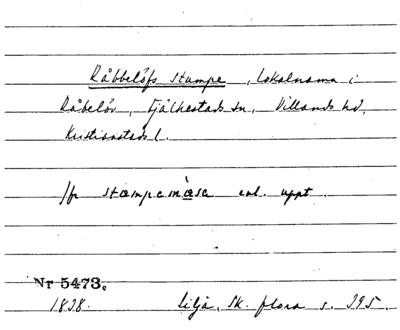 Råbbelöfs stampe, lokalnamn i
Råbelöv, Fjälkestads sn, Villands hd,
Kristianstads l.
jfr stampemåsa enl. uppt.
Nr 5473.
1838. Lilja, Sk. flora s. 395.